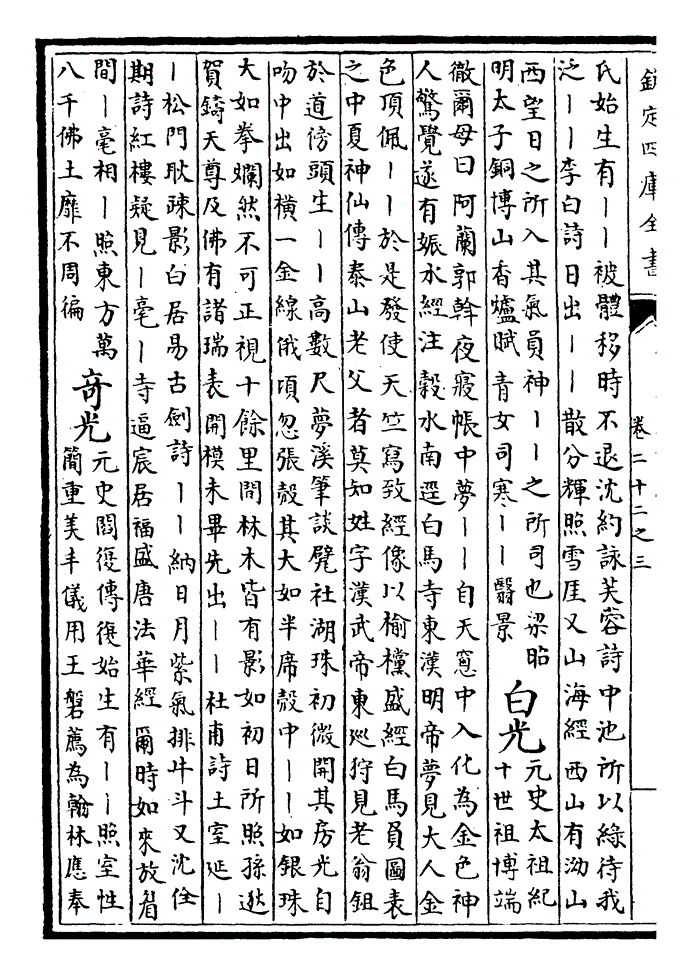 欽定四庫全書
卷二十二之三
氏始生有丨丨被體移時不退沈約詠芙蓉詩中池所以綠待我
泛丨丨李白詩日出丨丨散分輝照雪厓又山海經西山有泑山
西望日之所入其氣員神丨丨之所司也梁昭
明太子銅博山香爐賦青女司寒丨丨翳景
白光
元史太祖紀
十世祖博端
徹爾母曰阿蘭郭斡夜寢帳中夢丨丨自天窓中入化為金色神
人驚覺遂有娠水經注穀水南逕白馬寺東漢明帝夢見大人金
色項佩丨丨於是發使天竺寫致經像以榆欓盛經白馬員圖表
之中夏神仙傳泰山老父者莫知姓字漢武帝東廵狩見老翁鉏
於道傍頭生丨丨高數尺夢溪筆談甓社湖珠初微開其房光自
吻中出如横一金線俄頃忽張殼其大如半席殼中丨丨如銀珠
大如拳爛然不可正視十餘里間林木皆有影如初日所照孫逖
賀鑄天尊及佛有諸瑞表開模未畢先出丨丨杜甫詩土室延丨
丨松門耿疎影白居易古劍詩丨丨納日月紫氣排牛斗又沈佺
期詩紅樓疑見丨毫丨寺逼宸居福盛唐法華經爾時如來放眉
間丨毫相丨照東方萬
八千佛土靡不周徧
奇光
元史閻復傳復始生有丨丨照室性
簡重美丰儀用王磐薦為翰林應奉